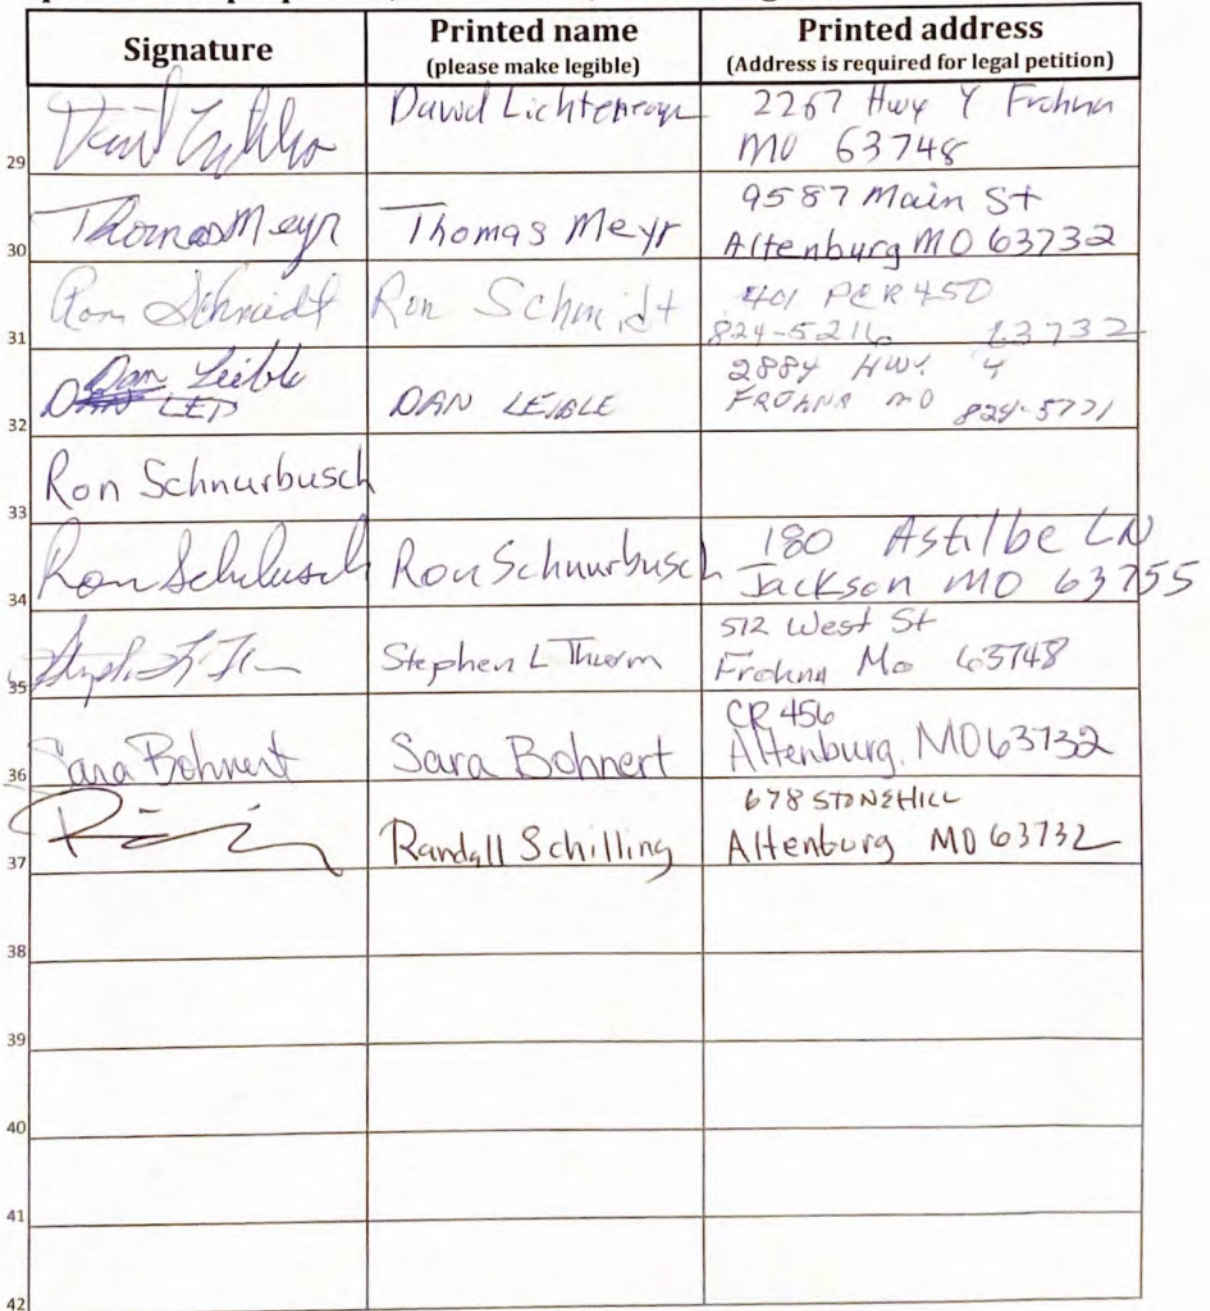 Signature
Printed name
(please make legible)
Printed address
(Address is required for legal petition)
29
David
2267 Hwy Y Frohna
MO 63748
30
Thomas Meyr
Thomas Meyr
9587 Main St
Altenburg MO 63732
31
Ron Schmidt
Ron Schmidt
401 PCR 450
824-5216 63732
32
Dan Leible
DAN LEIBLE
2884 HWY.
FROHNA MO 824-5771
33
Ron Schnurbusch
34
Ron
Ron Schnurbusch
180 Astilbe LN
Jackson MO 63755
35
Stephen L Thurm
512 West St
Frohna Mo 63748
36
Sara Bohnert
Sara Bohnert
CR 456
Altenburg, MO 63732
37
Randall Schilling
678 STONEHILL
Altenburg MO 63732
38
39
40
41
42